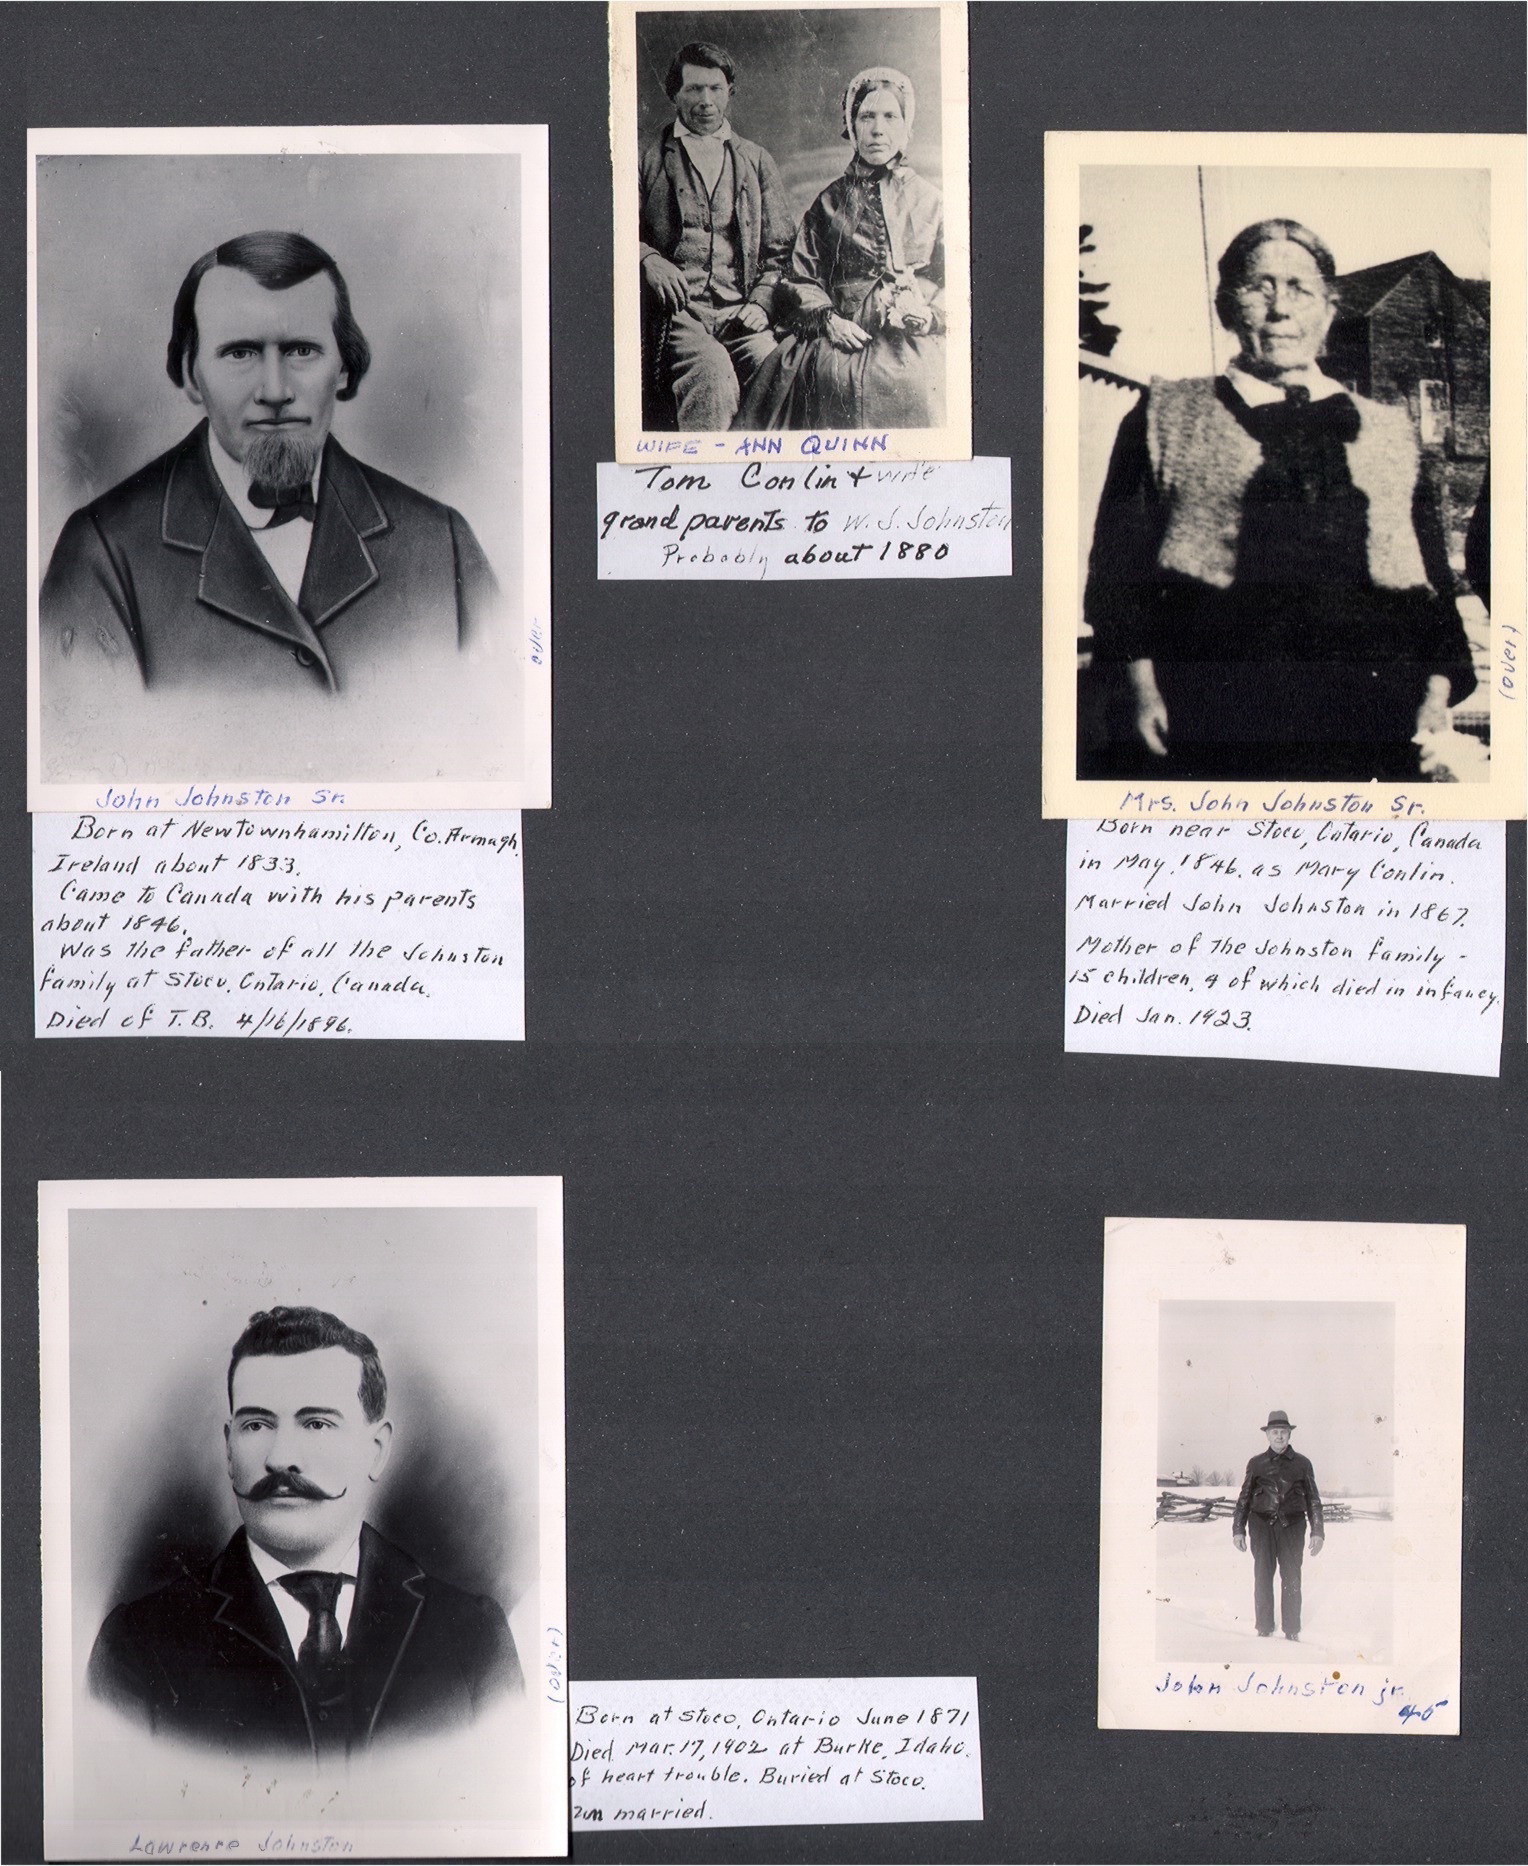 WIFE - ANN QUINN
Tom Conlin + wife
grand parents to W. J. Johnston
Probably about 1880
over
John Johnston Sr.
Born at Newtownhamilton, Co. Armagh,
Ireland about 1833.
Came to Canada with his parents
about 1846.
Was the father of all the Johnston
family at Stoco, Ontario, Canada.
Died of T.B. 4/16/1896.
(over)
Mrs. John Johnston Sr.
Born near Stoco, Ontario, Canada
in May, 1846. as Mary Conlin.
Married John Johnston in 1867.
Mother of the Johnston family -
15 children, 4 of which died in infancy.
Died Jan. 1923.
(over)
Lawrence Johnston
Born at Stoco, Ontario June 1871
Died Mar. 17, 1902 at Burke, Idaho.
of heart trouble. Buried at Stoco.
un married.
John Johnston jr.
45